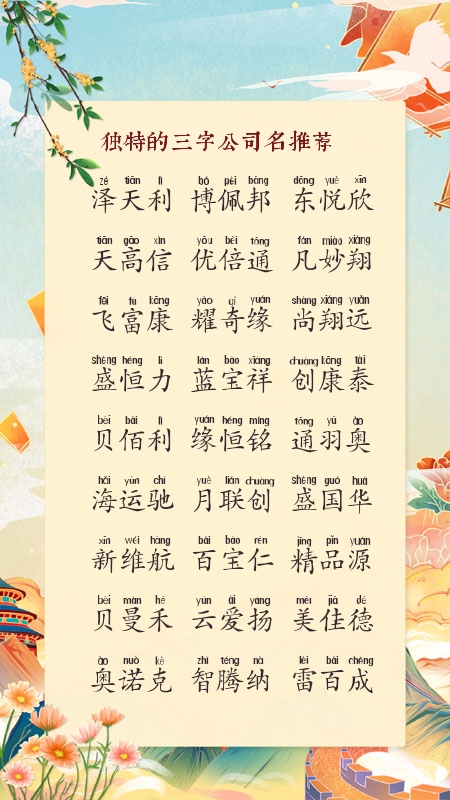 独特的三字公司名推荐
zé tiān lì bó pèi bāng dōng yuè xīn
泽天利 博佩邦 东悦欣
tiān gāo xìn yōu bèi tōng fán miào xiáng
天高信 优倍通 凡妙翔
fēi fù kāng yào qí yuán shàng xiáng yuǎn
飞富康 耀奇缘 尚翔远
shèng héng lì lán bǎo xiáng chuàng kāng tài
盛恒力 蓝宝祥 创康泰
bèi bǎi lì yuán héng míng tōng yǔ ào
贝佰利 缘恒铭 通羽奥
hǎi yùn chí yuè lián chuàng shèng guó huá
海运驰 月联创 盛国华
xīn wéi háng bǎi bǎo rén jīng pǐn yuán
新维航 百宝仁 精品源
bèi màn hé yún ài yáng měi jiā dé
贝曼禾 云爱扬 美佳德
ào nuò kè zhì téng nà léi bǎi chéng
奥诺克 智腾纳 雷百成